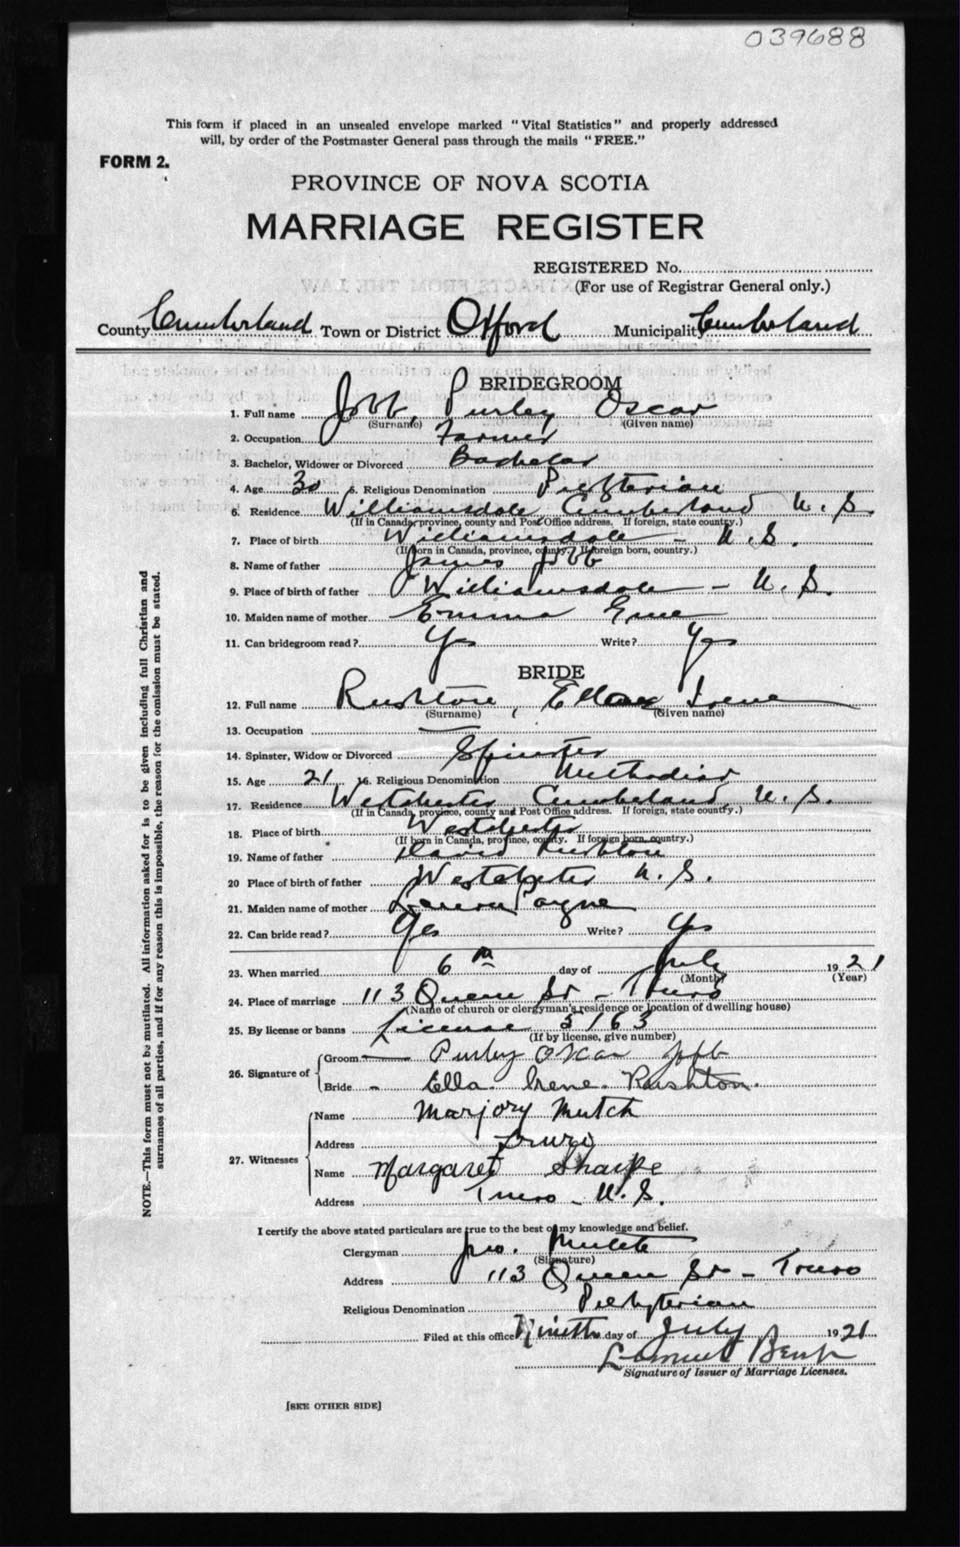 039688
This form if placed in an unsealed envelope marked "Vital Statistics" and properly addressed
will, by order of the Postmaster General pass through the mails "FREE."
FORM 2.
PROVINCE OF NOVA SCOTIA
MARRIAGE REGISTER
REGISTERED No.
(For use of Registrar General only.)
County Cumberland Town or District Oxford Municipality Cumberland
BRIDEGROOM
1. Full name Jobb, Purley Oscar
(Surname) (Given name)
2. Occupation Farmer
3. Bachelor, Widower or Divorced Bachelor
4. Age 30 5. Religious Denomination Presbyterian
6. Residence Williamsdale Cumberland N. S.
(If in Canada, province, county and Post Office address. If foreign, state country.)
7. Place of birth Williamsdale - N. S.
(If born in Canada, province, county. If foreign born, country.)
8. Name of father James Jobb
9. Place of birth of father Williamsdale - N. S.
10. Maiden name of mother Emma
11. Can bridegroom read? Yes Write? Yes
BRIDE
12. Full name Rushton, Ella Irene
(Surname) (Given name)
13. Occupation —
14. Spinster, Widow or Divorced Spinster
15. Age 21 16. Religious Denomination Methodist
17. Residence Westchester Cumberland, N. S.
(If in Canada, province, county and Post Office address. If foreign, state country.)
18. Place of birth Westchester
(If born in Canada, province, county. If foreign born, country.)
19. Name of father David Rushton
20 Place of birth of father Westchester N. S.
21. Maiden name of mother Payne
22. Can bride read? Yes Write? Yes
23. When married 6th day of July 1921
(Month) (Year)
24. Place of marriage 113 Queen St - Truro
(Name of church or clergyman's residence or location of dwelling house)
25. By license or banns License 3163
(If by license, give number)
26. Signature of Groom Purley Oscar Jobb
Bride - Ella Irene Rushton.
27. Witnesses Name Marjory Mutch
Address Truro
Name Margaret Sharpe
Address Truro - N. S.
I certify the above stated particulars are true to the best of my knowledge and belief.
Clergyman Jno. Mutch
(Signature)
Address 113 Queen St - Truro
Religious Denomination Presbyterian
Filed at this office Ninth day of July 1921
Signature of Issuer of Marriage Licenses.
[SEE OTHER SIDE]
NOTE.—This form must not be mutilated. All information asked for is to be given including full Christian and
surnames of all parties, and if for any reason this is impossible, the reason for the omission must be stated.